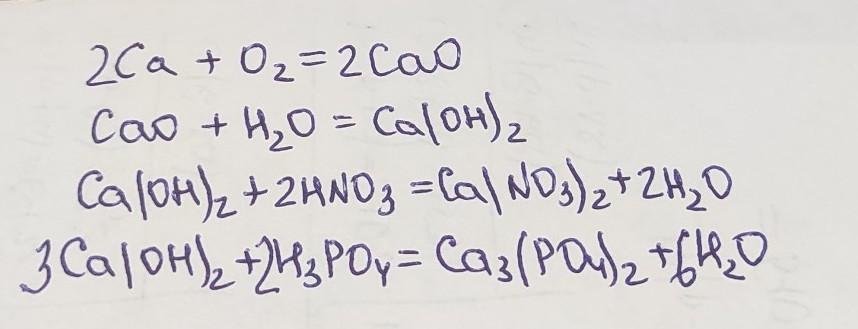 2Ca + O₂ = 2CaO
CaO + H₂O = Ca(OH)₂
Ca(OH)₂ + 2HNO₃ = Ca(NO₃)₂ + 2H₂O
3Ca(OH)₂ + 2H₃PO₄ = Ca₃(PO₄)₂ + 6H₂O